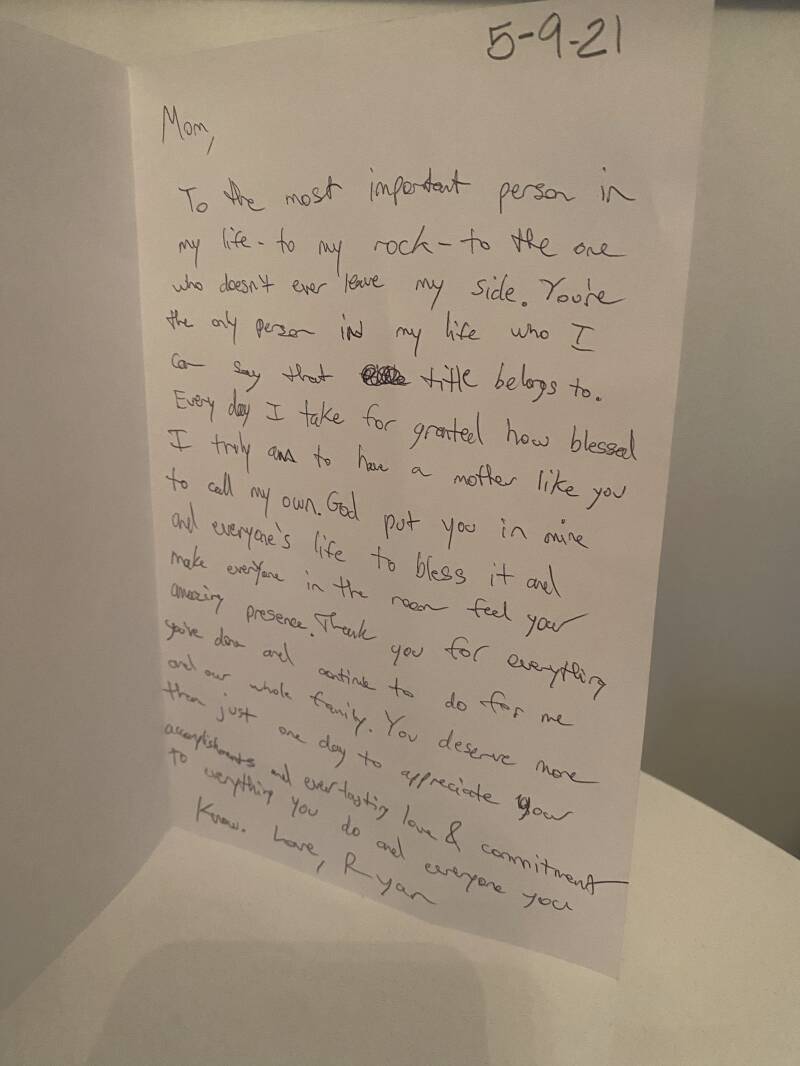 5-9-21
Mom,
To the most important person in
my life - to my rock - to the one
who doesn't ever leave my side. You're
the only person in my life who I
can say that title belongs to.
Every day I take for granted how blessed
I truly am to have a mother like you
to call my own. God put you in mine
and everyone's life to bless it and
make everyone in the room feel your
amazing presence. Thank you for everything
you've done and continue to do for me
and our whole family. You deserve more
than just one day to appreciate your
accomplishments and everlasting love & commitment
to everything you do and everyone you
know. Love, Ryan